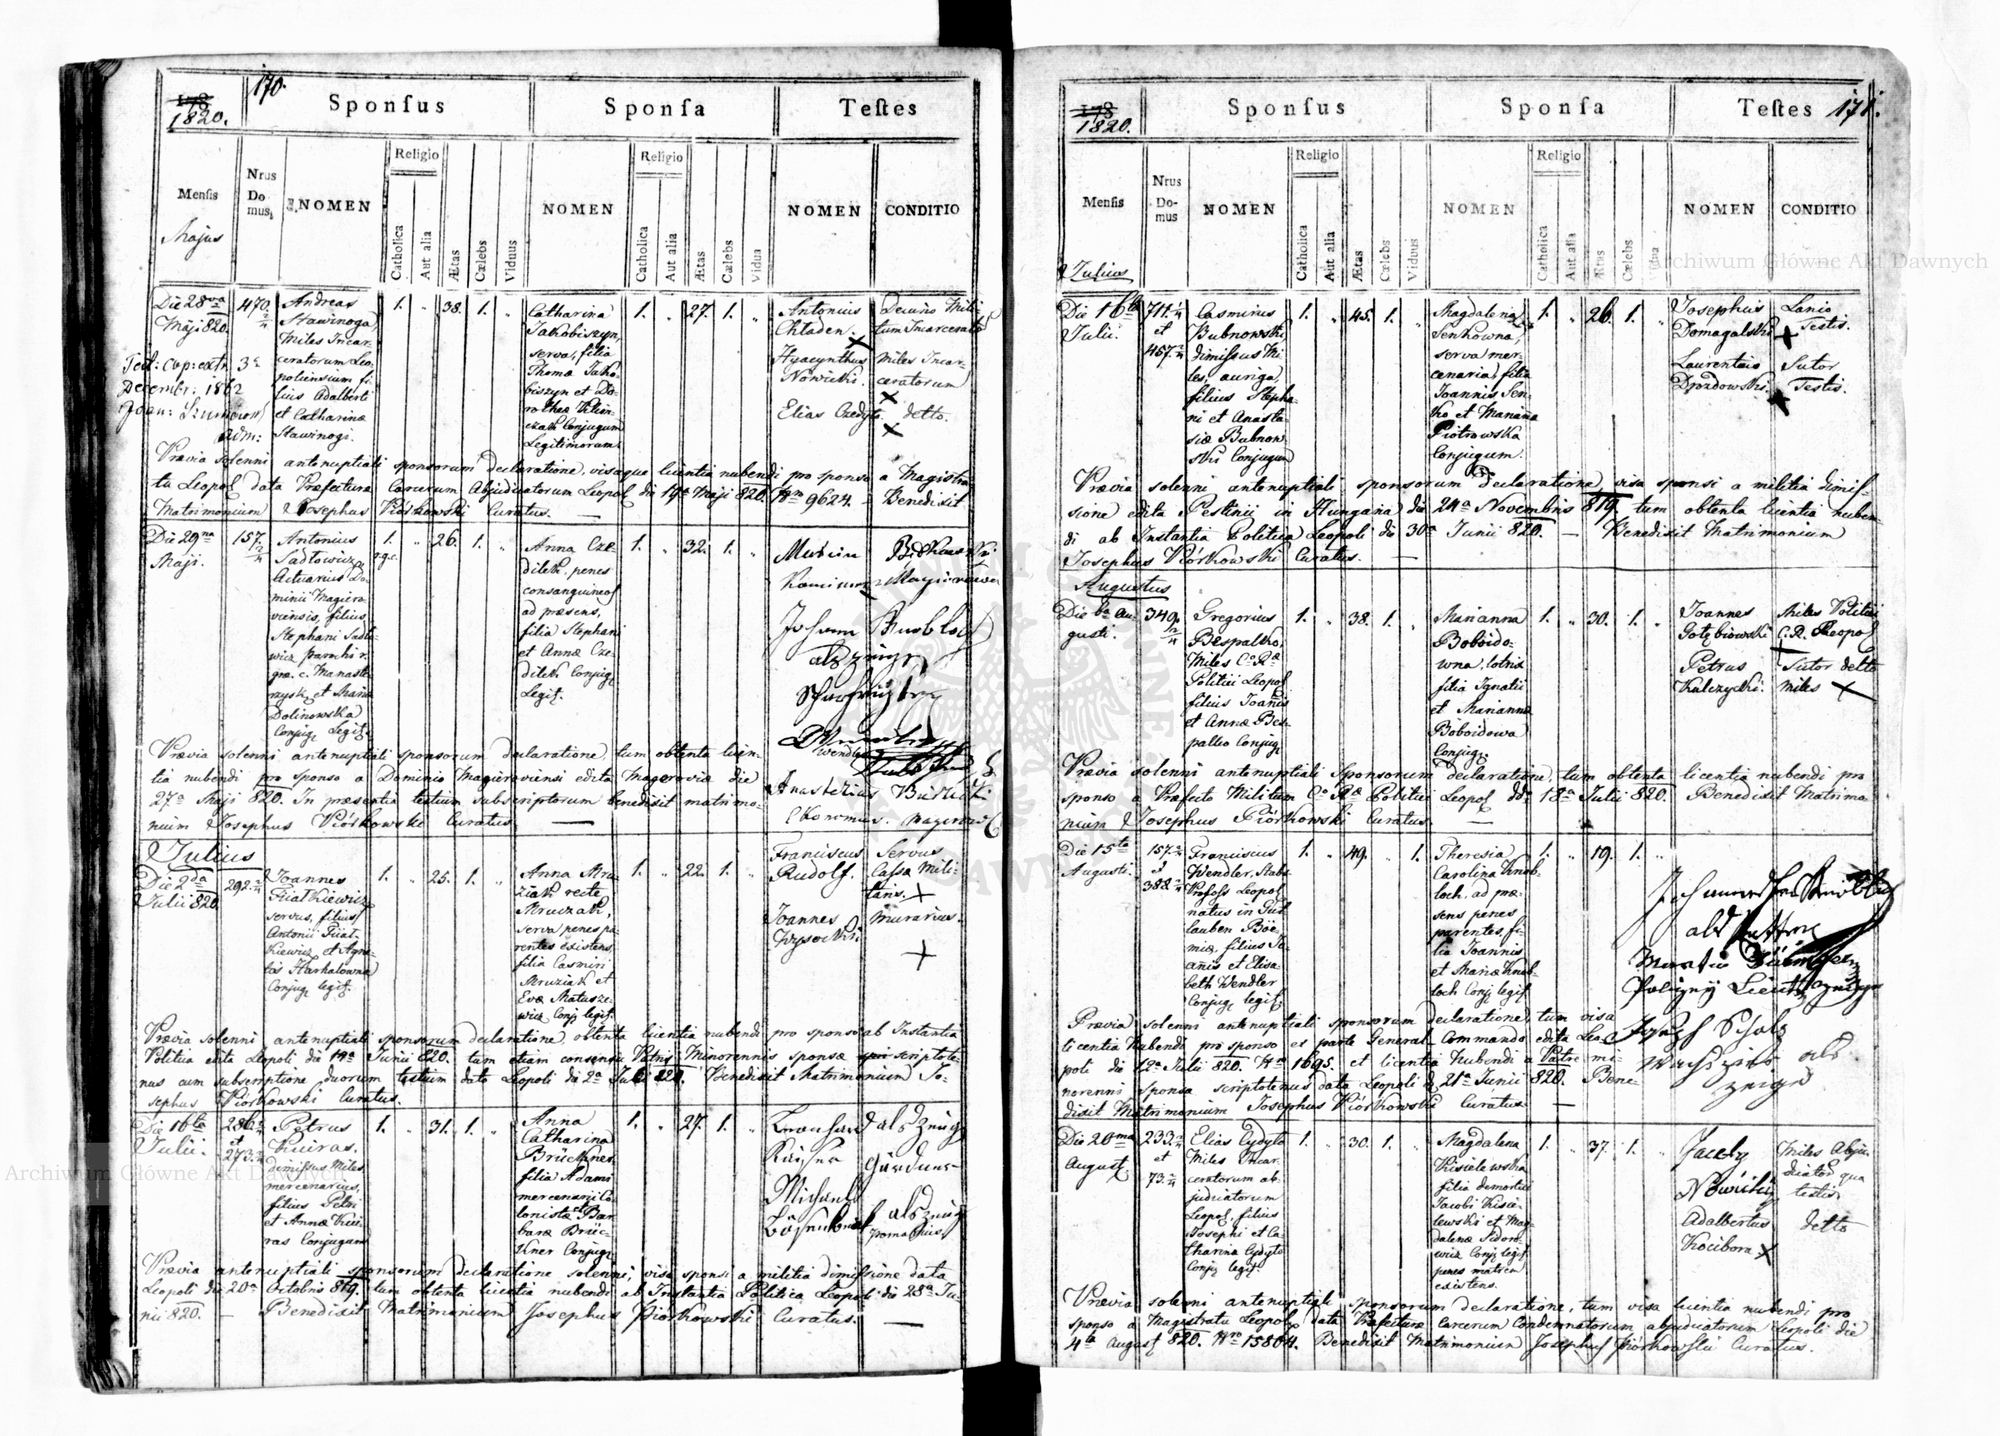 170.
178
1820.
Sponsus
Sponsa
Testes
Mensis
Nrus Domus
NOMEN
Religio
Catholica
Aut alia
Ætas
Cælebs
Viduus
NOMEN
Religio
Catholica
Aut alia
Ætas
Cælebs
Vidua
NOMEN
CONDITIO
Majus
Die 28va
Maji 820.
470 2/4
Andreas
Stawinoga
Miles Incar-
ceratorum Leo-
poliensium fi-
lius Adalberti
et Catharinæ
Stawinogi.
1. " 38. 1. "
Catharina
Jakobiszyn,
serva, filia
Thomæ Jako-
biszyn et Do-
rotheæ
Conjugum
Legitimorum
1. " 27. 1. "
Antonius
Chladen.
Hyacynthus
Nowicki.
Elias Czedyło
Miles Incar-
ceratorum
detto.
Decembr: 1862
adm:
Prævia solenni antenuptiali sponsorum declaratione, visaque licentia nubendi pro sponso a Magistra-
tu Leopol data Præfecturæ Carcerum Abjudicatorum Leopol die 17a Maji 820. Nro 9624. - Benedixit
Matrimonium Josephus Piórkowski Curatus.
Die 29na
Maji.
157 2/4
Antonius
Sadłowicz,
Actuarius Do-
minii Magiero-
viensis, filius
Stephani Sadło-
wicz parochi r.
græ. c. Manaste-
rzysk, et Mariæ
Dolinowska
Conjug Legit.
1. r.g.c. " 26. 1. "
Anna Cze-
dilek, penes
consanguineos
ad præsens,
filia Stephani
et Annæ Cze-
dilek Conjug
Legit.
1. " 32. 1. "
Johann
als zeuge
Wendler
Anastazius
Ekonomus.
Prævia solenni antenuptiali sponsorum declaratione, tum obtenta licen-
tia nubendi pro sponso a Dominio Magieroviensi edita Mageroviæ die
27a Maji 820. In præsentia testium subscriptorum benedixit matrimo-
nium Josephus Piórkowski Curatus
Julius
Die 2da
Julii 820.
292 2/4
Joannes
Fiałkiewicz
servus, filius
Antonii Fiał-
kiewicz et Agne-
tis Harhalowna
Conjug legit.
1. " 25. 1. "
Anna Mru-
ziak recte
Mruczak,
serva penes pa-
rentes existens,
filia Casmiri
Mruziak et
Evæ Matusze-
wicz Conj legit.
1. " 22. 1. "
Franciscus
Rudolf.
Joannes
Wysocki
Servus
Cassæ Mili-
taris.
Murarius.
Prævia solenni antenuptiali sponsorum declaratione, obtenta licentia nubendi pro sponso ab Instantia
Politica edita Leopoli die 19a Junii 820. tum etiam consensu Patris Minorennis sponsæ scripto te-
nus cum subscriptione duorum testium dato Leopoli die 2a Julii 820. Benedixit Matrimonium Jo-
sephus Piórkowski Curatus.
Die 16ta
Julii.
286 2/4
et
273 2/4
Petrus
Kuiras,
dimissus Miles
mercenarius,
filius Petri
et Annæ Kui-
ras Conjugum
1. " 31. 1. "
Anna
Catharina
Brückner,
filia Adami
mercenarii Co-
lonistæ et Bar-
baræ Brüc-
kner Conjug
1. " 27. 1. "
Kaiser
Michael
als zeuge
Gärdner
als zeuge
Prævia antenuptiali sponsorum declaratione solenni, visa sponsi a militia dimissione data
Leopoli die 20a Octobris 819. tum obtenta licentia nubendi ab Instantia Politica Leopoli die 28a Ju-
nii 820. — Benedixit Matrimonium Josephus Piórkowski Curatus.
171.
178
1820.
Sponsus
Sponsa
Testes
Mensis
Nrus Do-mus
NOMEN
Religio
Catholica
Aut alia
Ætas
Cælebs
Viduus
NOMEN
Religio
Catholica
Aut alia
Ætas
Cælebs
Vidua
NOMEN
CONDITIO
Julius
Die 16ta
Julii.
711 1/4
et
457 2/4
Casmirus
Bubnowski
dimissus Mi-
les, auriga,
filius Stepha-
ni et Anasta-
siæ Bubnow-
ski Conjugum
1. " 45. 1. "
Magdalena
Senkowna,
serva mer-
cenaria, filia
Joannis Sen-
ko et Marianna
Piotrowska
Conjugum.
1. " 26. 1. "
Josephus
Domagalski
Laurentius
Dziordowski
Lanio
Testis.
Sutor
Testis.
Prævia solenni antenuptiali sponsorum declaratione, visa sponsi a militia dimis-
sione edita Pesthini in Hungaria die 24a Novembris 819. tum obtenta licentia nuben-
di ab Instantia Politica Leopoli die 30a Junii 820. — Benedixit Matrimonium
Josephus Piórkowski Curatus.
Augustus
Die 6a Au-
gusti.
349 2/4
Gregorius
Bespalko,
Miles C. R.
Politiæ Leopol
filius Joanis
et Annæ Bes-
palko Conjug
1. " 38. 1. "
Marianna
Boboido-
wna, lotrix
filia Ignatii
et Mariannæ
Boboidowa
Conjug
1. " 30. 1. "
Joannes
Gołębiowski
Petrus
Kulczycki.
Miles Politiæ
C. R. Leopol
Sutor detto
miles
Prævia solenni antenuptiali sponsorum declaratione, tum obtenta licentia nubendi pro
sponso a Præfecto Militum C. R. Politiæ Leopol ddo 18a Julii 820. Benedixit Matrimo-
nium Josephus Piórkowski Curatus
Die 15ta
Augusti.
157 2/4
388 2/4
Franciscus
Wendler, Stabs
Profoss Leopol
natus in Gut-
lauben Böe-
miæ, filius Jo-
anis et Elisa-
beth Wendler
Conjug legit.
1. " 49. " 1.
Theresia
Carolina Knob-
loch, ad præ-
sens penes
parentes, fi-
lia Joannis
et Mariæ Knob-
loch Conj legit.
1. " 19. 1. "
als
Joseph Scholz
als
zeuge
Prævia solenni antenuptiali sponsorum declaratione, tum visa
licentia nubendi pro sponso ex parte General-Commando edita Leo-
poli die 12a Julii 820. Nro 1695. et licentia nubendi a Patre mi-
norenni sponsa scriptotenus data Leopoli d. 21a Junii 820. Bene-
dixit Matrimonium Josephus Piórkowski Curatus
Die 20ma
August.
233 2/4
et
73 2/4
Elias Cydyło
Miles Incar-
ceratorum ab-
judicatorum
Leopol, filius
Josephi et Ca-
tharina Cydyło
Conj legit.
1. " 30. 1. "
Magdalena
Kisielewska
filia demortui
Jacobi Kisie-
lewski et Mag-
dalenæ Sidoro-
wicz Conj legit
penes matrem
existens.
1. " 37. 1. "
Jacenty
Nowicki
Adalbertus
Kocibora
Miles Abju-
dicator qua
testis
detto
Prævia solenni antenuptiali sponsorum declaratione, tum visa licentia nubendi pro
sponso a Magistratu Leopol data Præfecturæ Carcerum Condemnatorum abjudicatorum Leopoli die
4ta August 820. Nro 15864. Benedixit Matrimonium Josephus Piórkowski Curatus.
Archiwum Główne Akt Dawnych
Archiwum Główne Akt Dawnych